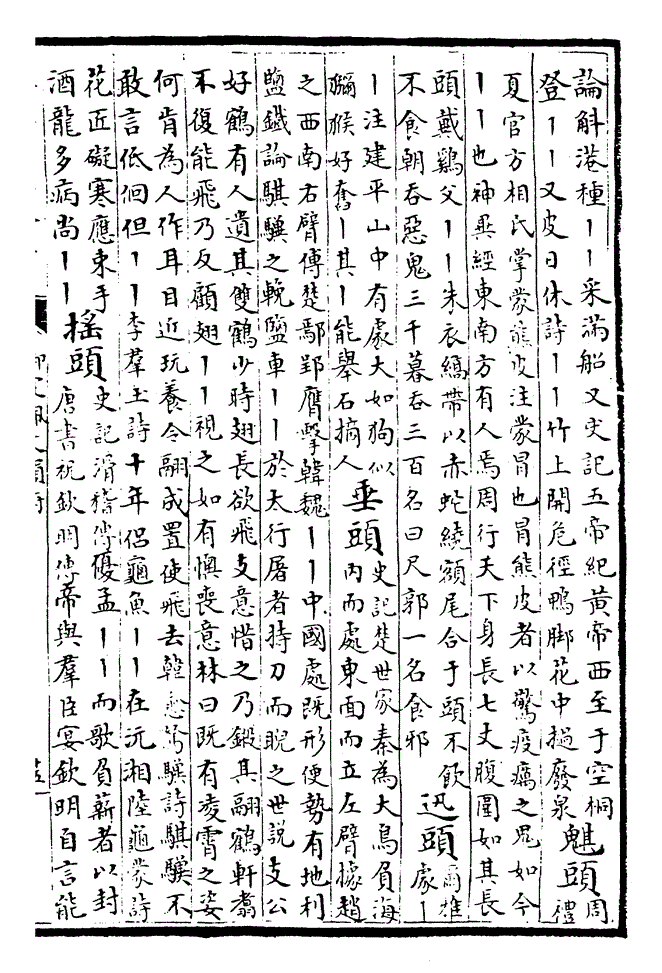 論斛港種丨丨采滿船又史記五帝紀黃帝西至于空桐
登丨丨又皮日休詩丨丨竹上開危徑鴨脚花中擿廢泉
魌頭
周
禮
夏官方相氏掌蒙熊皮注蒙冒也冒熊皮者以驚疫癘之鬼如今
丨丨也神異經東南方有人焉周行天下身長七丈腹圍如其長
頭戴鷄父丨丨朱衣縞帶以赤蛇繞額尾合于頭不飲
不食朝吞惡鬼三千暮吞三百名曰尺郭一名食邪
迅頭
爾雅
豦丨
丨注建平山中有豦大如狗似
獼猴好奮丨其丨能舉石擿人
垂頭
史記楚世家秦為大鳥負海
內而處東面而立左臂據趙
之西南右臂傅楚鄢郢膺擊韓魏丨丨中國處既形便勢有地利
鹽鐵論騏驥之輓鹽車丨丨於太行屠者持刀而睨之世説支公
好鶴有人遺其雙鶴少時翅長欲飛支意惜之乃鎩其翮鶴軒翥
不復能飛乃反顧翅丨丨視之如有懊喪意林曰既有凌霄之姿
何肯為人作耳目近玩養令翮成置使飛去韓愈駑驥詩騏驥不
敢言低佪但丨丨李羣玉詩十年侶龜魚丨丨在沅湘陸龜蒙詩
花匠礙寒應束手
酒龍多病尚丨丨
搖頭
史記滑稽傳優孟丨丨而歌負薪者以封
唐書祝欽明傳帝與羣臣宴欽明自言能